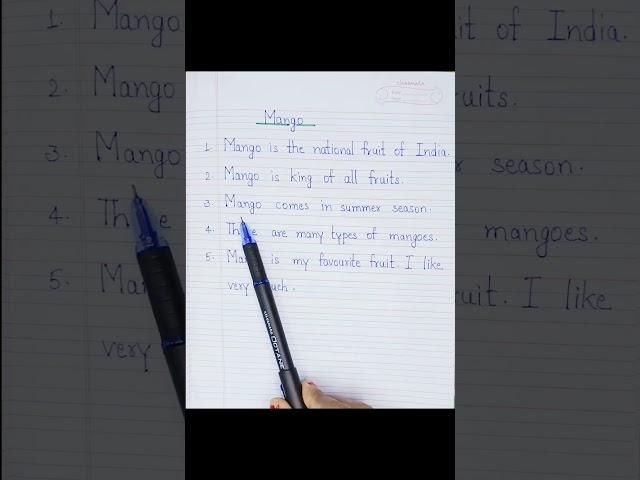 classmate
Mango
1. Mango is the national fruit of India.
2. Mango is king of all fruits.
3. Mango comes in summer season.
4. There are many types of mangoes.
5. Mango is my favourite fruit. I like
very much.
OCTANE